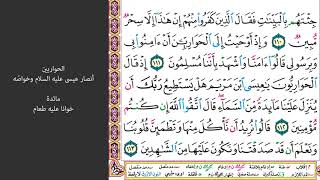 جِئْتَهُم بِٱلْبَيِّنَٰتِ فَقَالَ ٱلَّذِينَ كَفَرُوا۟ مِنْهُمْ إِنْ هَٰذَآ إِلَّا سِحْرٌ
مُّبِينٌ ١١٠ وَإِذْ أَوْحَيْتُ إِلَى ٱلْحَوَارِيِّـۧنَ أَنْ ءَامِنُوا۟ بِى
وَبِرَسُولِى قَالُوٓا۟ ءَامَنَّا وَٱشْهَدْ بِأَنَّنَا مُسْلِمُونَ ١١١ إِذْ قَالَ
ٱلْحَوَارِيُّونَ يَٰعِيسَى ٱبْنَ مَرْيَمَ هَلْ يَسْتَطِيعُ رَبُّكَ أَن
يُنَزِّلَ عَلَيْنَا مَآئِدَةً مِّنَ ٱلسَّمَآءِ قَالَ ٱتَّقُوا۟ ٱللَّهَ إِن كُنتُم
مُّؤْمِنِينَ ١١٢ قَالُوا۟ نُرِيدُ أَن نَّأْكُلَ مِنْهَا وَتَطْمَئِنَّ قُلُوبُنَا
وَنَعْلَمَ أَن قَدْ صَدَقْتَنَا وَنَكُونَ عَلَيْهَا مِنَ ٱلشَّٰهِدِينَ ١١٣
الحواريين
أنصار عيسى عليه السلام وخواصّه
مائدة
خوانا عليه طعام